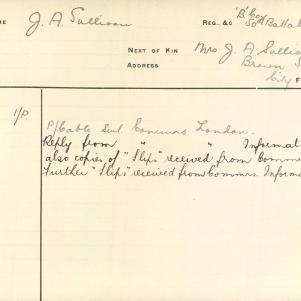 ME J. A. Sullivan REG. &C 'B' Coy
50th Battal
NEXT OF KIN Mrs J. A Sulliv
ADDRESS Brown S
City F
1/P P/Cable sent Commrs London.
Reply from " " Informat
also copies of "Slips" received from Commr
Further "Slips" received from Commrs. Informa